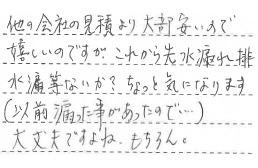 他の会社の見積より大部安いので
嬉しいのですが、これから先水漏れ排
水漏等ないか?ちょっと気になります
(以前漏った事があったので…)
大丈夫ですよね。もちろん。